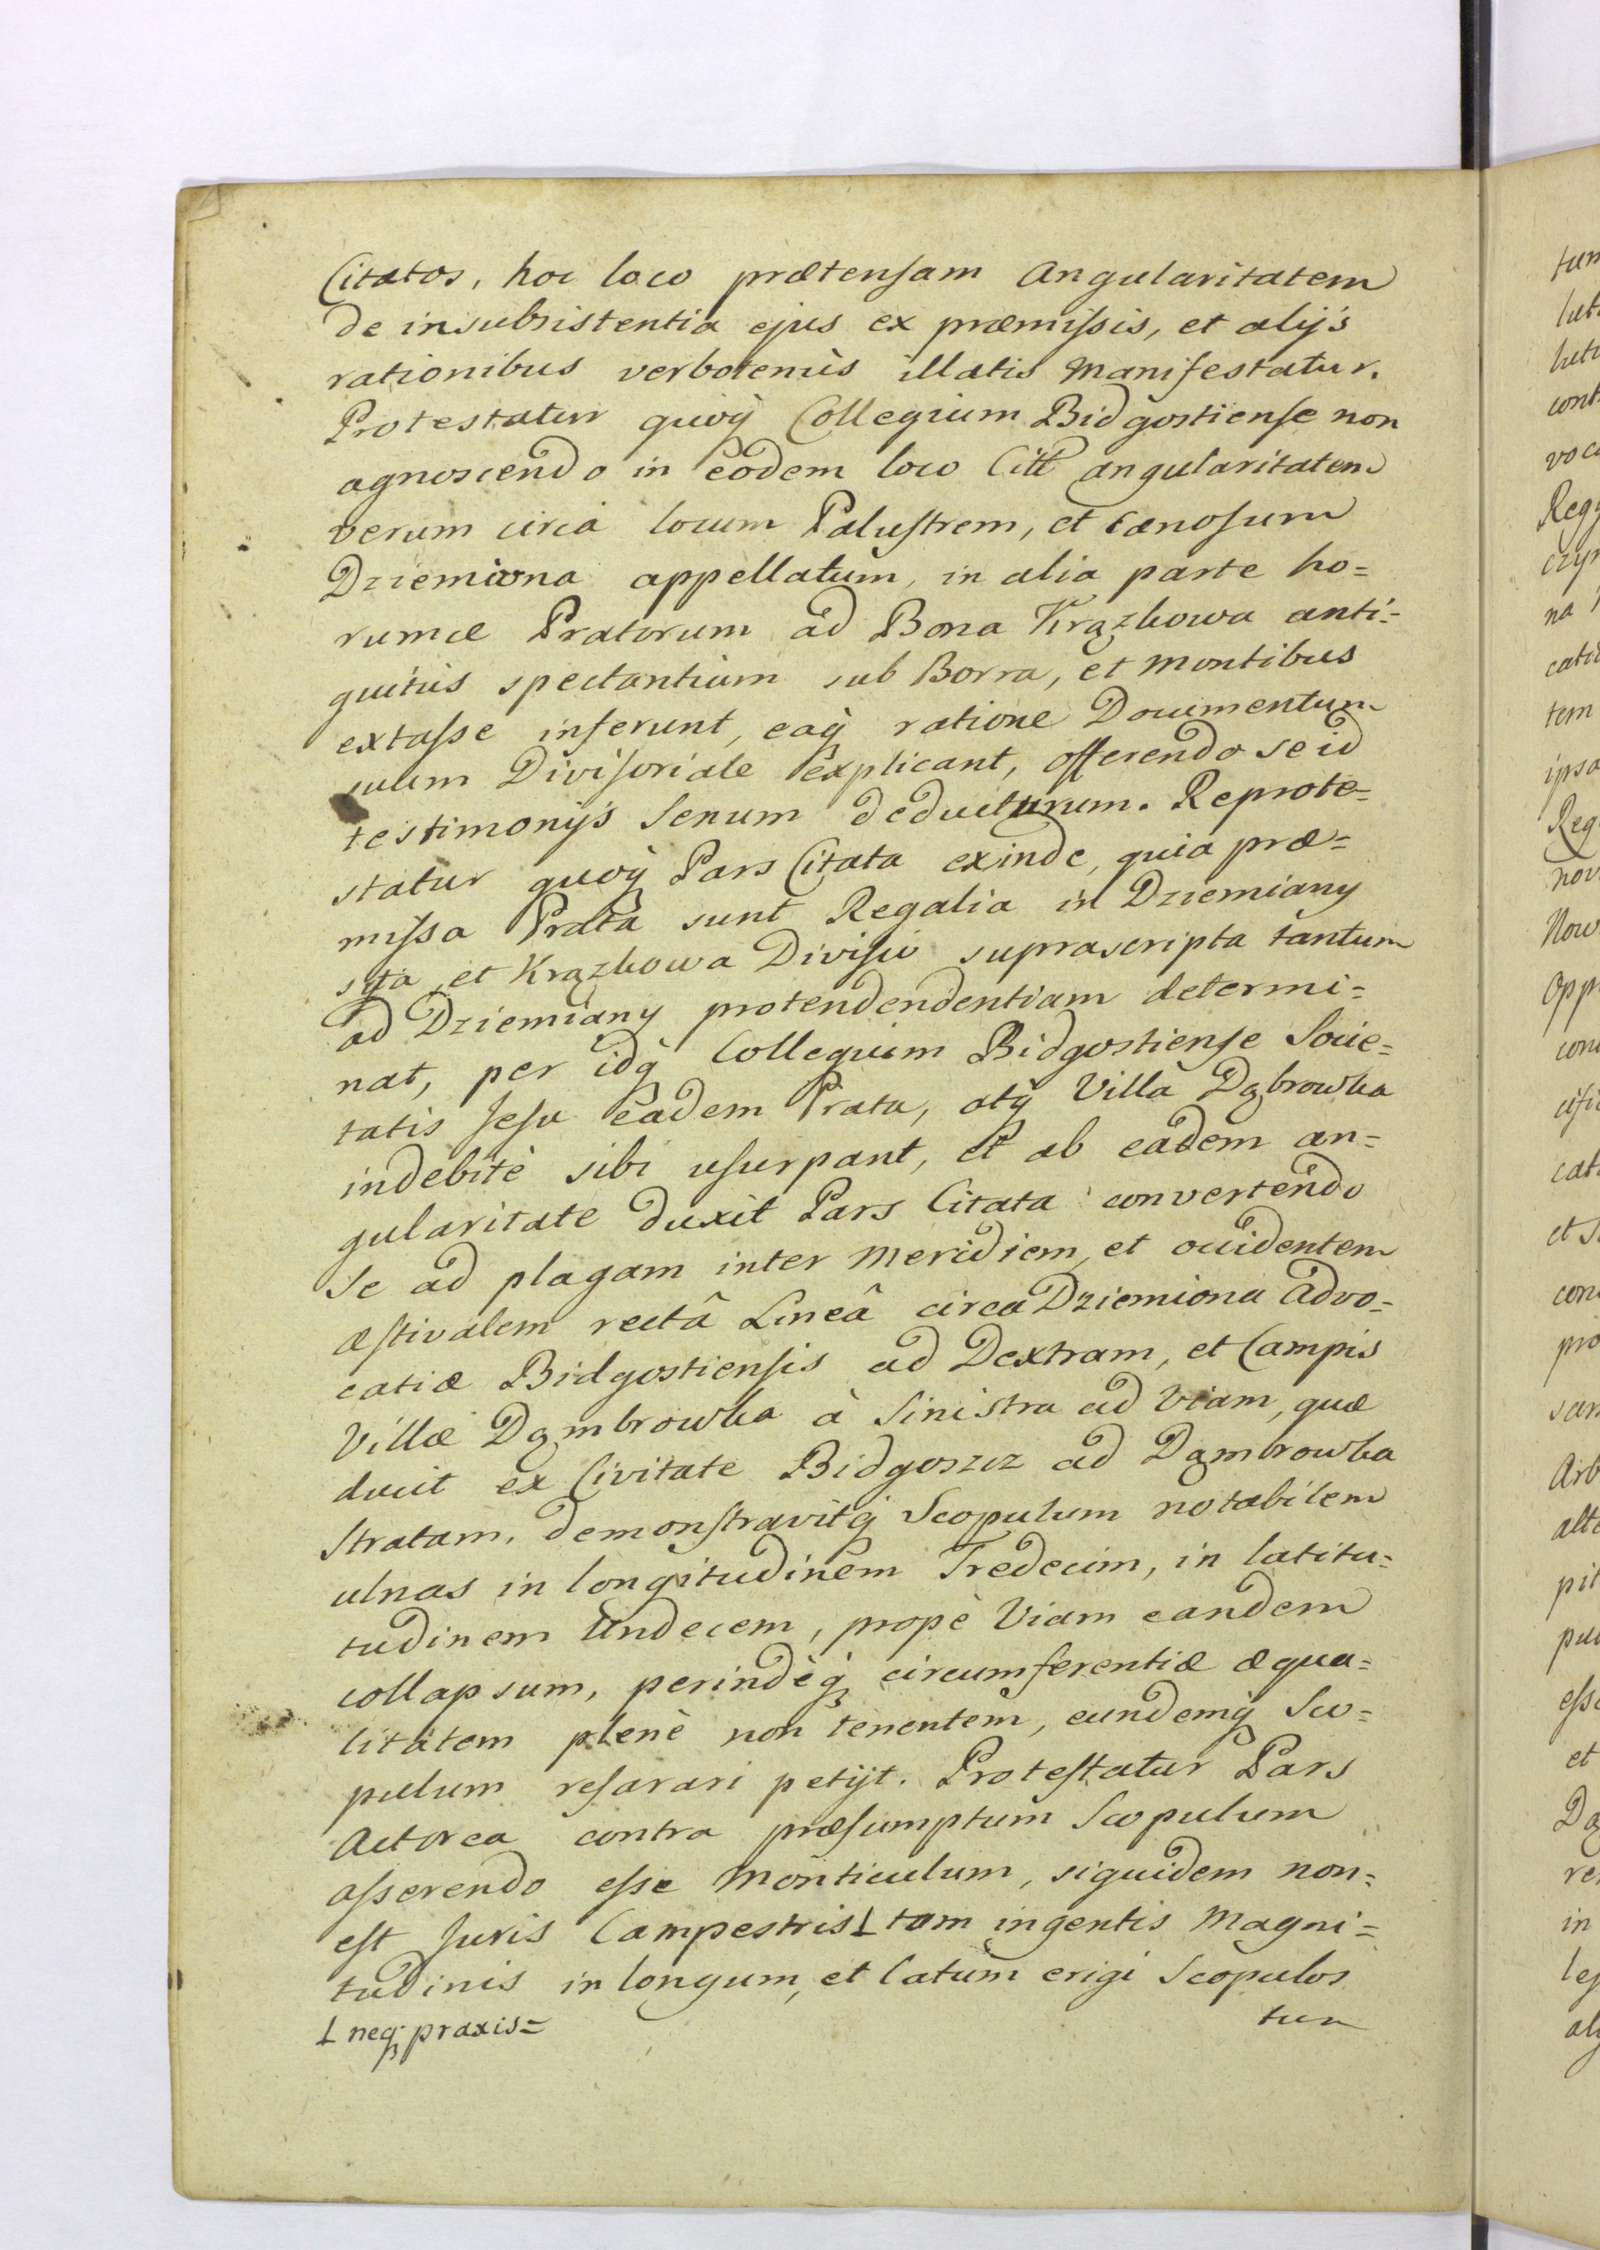 Citatos, hoc loco prætensam Angularitatem
de insubsistentia ejus ex præmissis, et alijs
rationibus verbotenùs illatis Manifestatur.
Protestatur quoq̀ Collegium Bidgostiense non
agnoscendo in eodem loco Citt angularitatem
verum circà locum Palustrem, et cænosum
Dziemiona appellatum, in alia parte ho=
rumce Pratorum ad Bona Krązkowa anti=
quitùs spectantium sub Borra, et Montibus
extasse inferunt, eaq̀ ratione Documentum
suum Divisoriale explicant, offerendo se id
testimonijs Senum deducturum. Reprote=
statur quoq̀ Pars Citata exinde, quia præ=
missa Prata sunt Regalia in Dziemiany
sita, et Krązkowa Divisio suprascripta tantum
ad Dziemiany protendendentiam determi=
nat, per idq̀ Collegium Bidgostiense Socie=
tatis Jesu eadem Prata, atq̀ Villa Dąbrowka
indebitè sibi usurpant, et ab eadem an=
gularitate duxit Pars Citata convertendo
Se ad plagam inter Meridiem, et occidentem
æstivalem rectâ Lineâ circa Dziemiona Advo=
catiæ Bidgostiensis ad Dextram, et Campis
Villæ Dąmbrowka à Sinistra ad Viam, quæ
ducit ex Civitate Bidgoszcz ad Dąmbrowka
Stratam, demonstravitq̀ Scopulum notabilem
ulnas in longitudinem Tredecim, in latitu=
tudinem Undecem, propè Viam eandem
collapsum, perindèq̀ circumferentiæ æqua=
litatem plenè non tenentem, eundemq̀ Sco=
pulum resarari petijt. Protestatur Pars
Actorea contra præsumptum Scopulum
asserendo esse Monticulum, siquidem non=
est Juris Campestris⊥ tam ingentis Magni=
tudinis in longum, et latum erigi Scopulos
⊥ neq̀ praxis=
tun